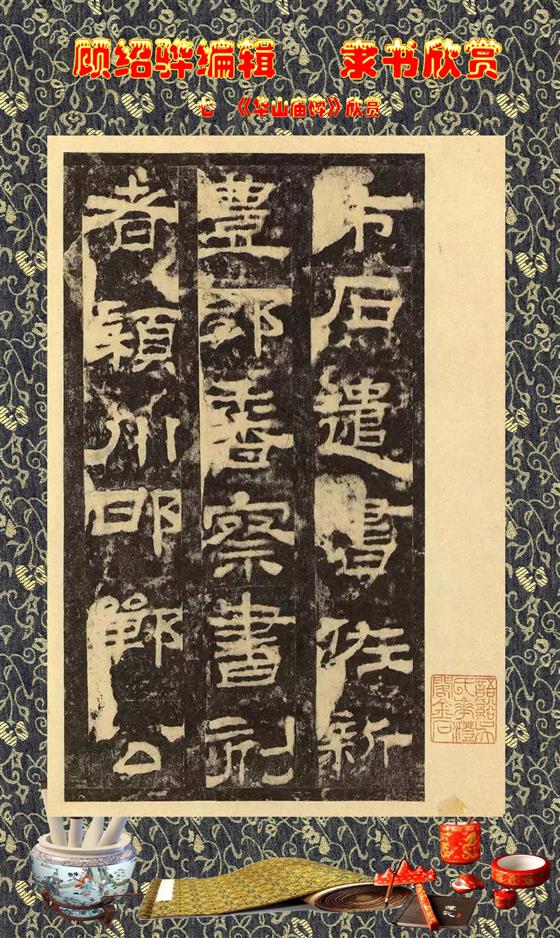 顾绍骅编辑 隶书欣赏
心 《华山庙碑》欣赏
市石遣書佐新
豐郭香察書刻
者穎川邯鄲公